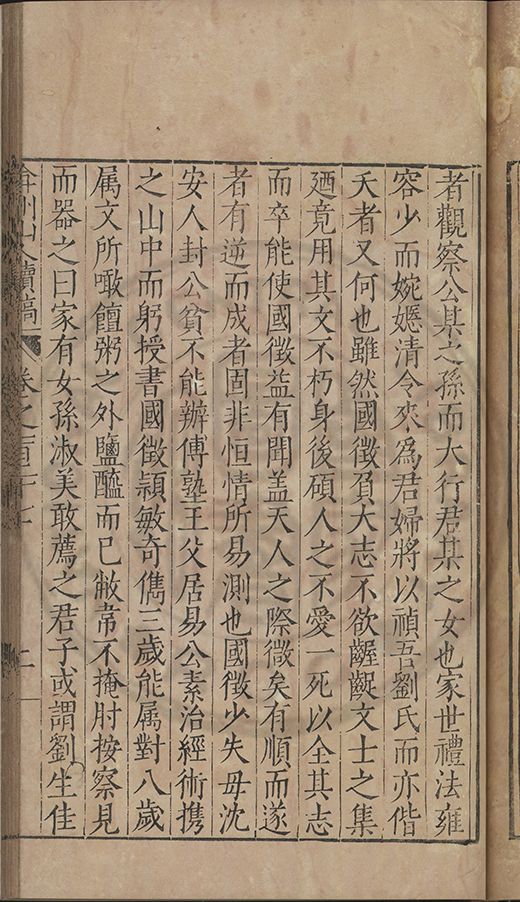 者觀察公某之孫而大行君某之女也家世禮法雍
容少而婉嫕清令來爲君婦將以禎吾劉氏而亦偕
夭者又何也雖然國徵負大志不欲齷齪文士之集
廼竟用其文不朽身後碩人之不愛一死以全其志
而卒能使國徵益有聞盖天人之際微矣有順而遂
者有逆而成者固非恒情所易測也國徵少失母沈
安人封公貧不能辦傅塾王父居易公素治經術携
之山中而躬授書國徵頴敏奇儁三歲能属對八歲
属文所噉饘粥之外鹽醯而已敝韋不掩肘按察見
而器之曰家有女孫淑美敢薦之君子或謂劉生佳
弇州山人續稿 卷之一百二十七 二